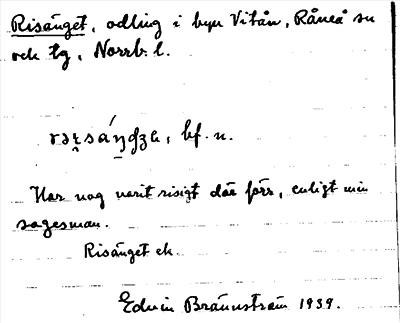 Risänget, odling i byn Vitån, Råneå sn
och tg, Norrb. l.
bf. n.
Har nog varit risigt där förr, enligt min
sagesman.
Risänget ek.
Edvin Brännström 1939.